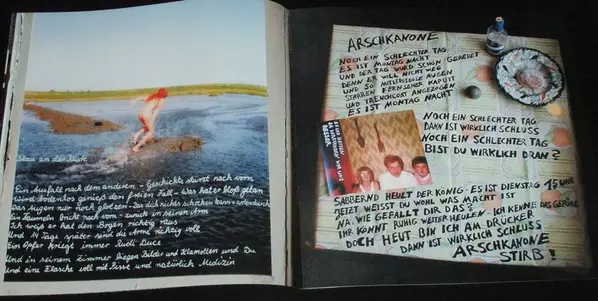 Blau an der Küste
Ein Ausfall nach dem anderen - Geschichte stürzt nach vorn
Wird bodenlos genießt den freien Fall - Was hat er bloß getan
Das Augen nur noch glotzen - Das dich nichts schocken kann +
Ein Taumeln bricht nach vorn - zurück in seinen Arm
Ich weiß er hat den Bogen richtig raus
Und 14 Tage später sind die Arme richtig voll
Ein Opfer kriegt immer Rudi Luce
Und in seinem Zimmer liegen Bilder und Klamotten und Du
und eine Flasche voll mit Pisse und natürlich Medizin
ARSCHKANONE
NOCH EIN SCHLECHTER TAG
ES IST MONTAG NACHT
UND DER TAG WURD SCHON GEREDET
DENN ER WILL NICHT WEG
UND SO MITLEIDSLOSE AUGEN
STARREN FERNSEHER KAPUTT
UND TRENCHCOAT ANGEZOGEN
ES IST MONTAG NACHT
NOCH EIN SCHLECHTER TAG
DANN IST WIRKLICH SCHLUSS
NOCH EIN SCHLECHTER TAG
BIST DU WIRKLICH DRAN?
BESSER
SABBERND HEULT DER KÖNIG - ES IST DIENSTAG 15 UHR
JETZT WEISST DU WOHL WAS MACHT IST
NA WIE GEFÄLLT DIR DAS?
IHR KONNT RUHIG WEITER HEULEN - ICH KENNE DAS GEFÜHL
DOCH HEUT BIN ICH AM DRÜCKER
DANN IST WIRKLICH SCHLUSS
ARSCHKANONE
STIRB!